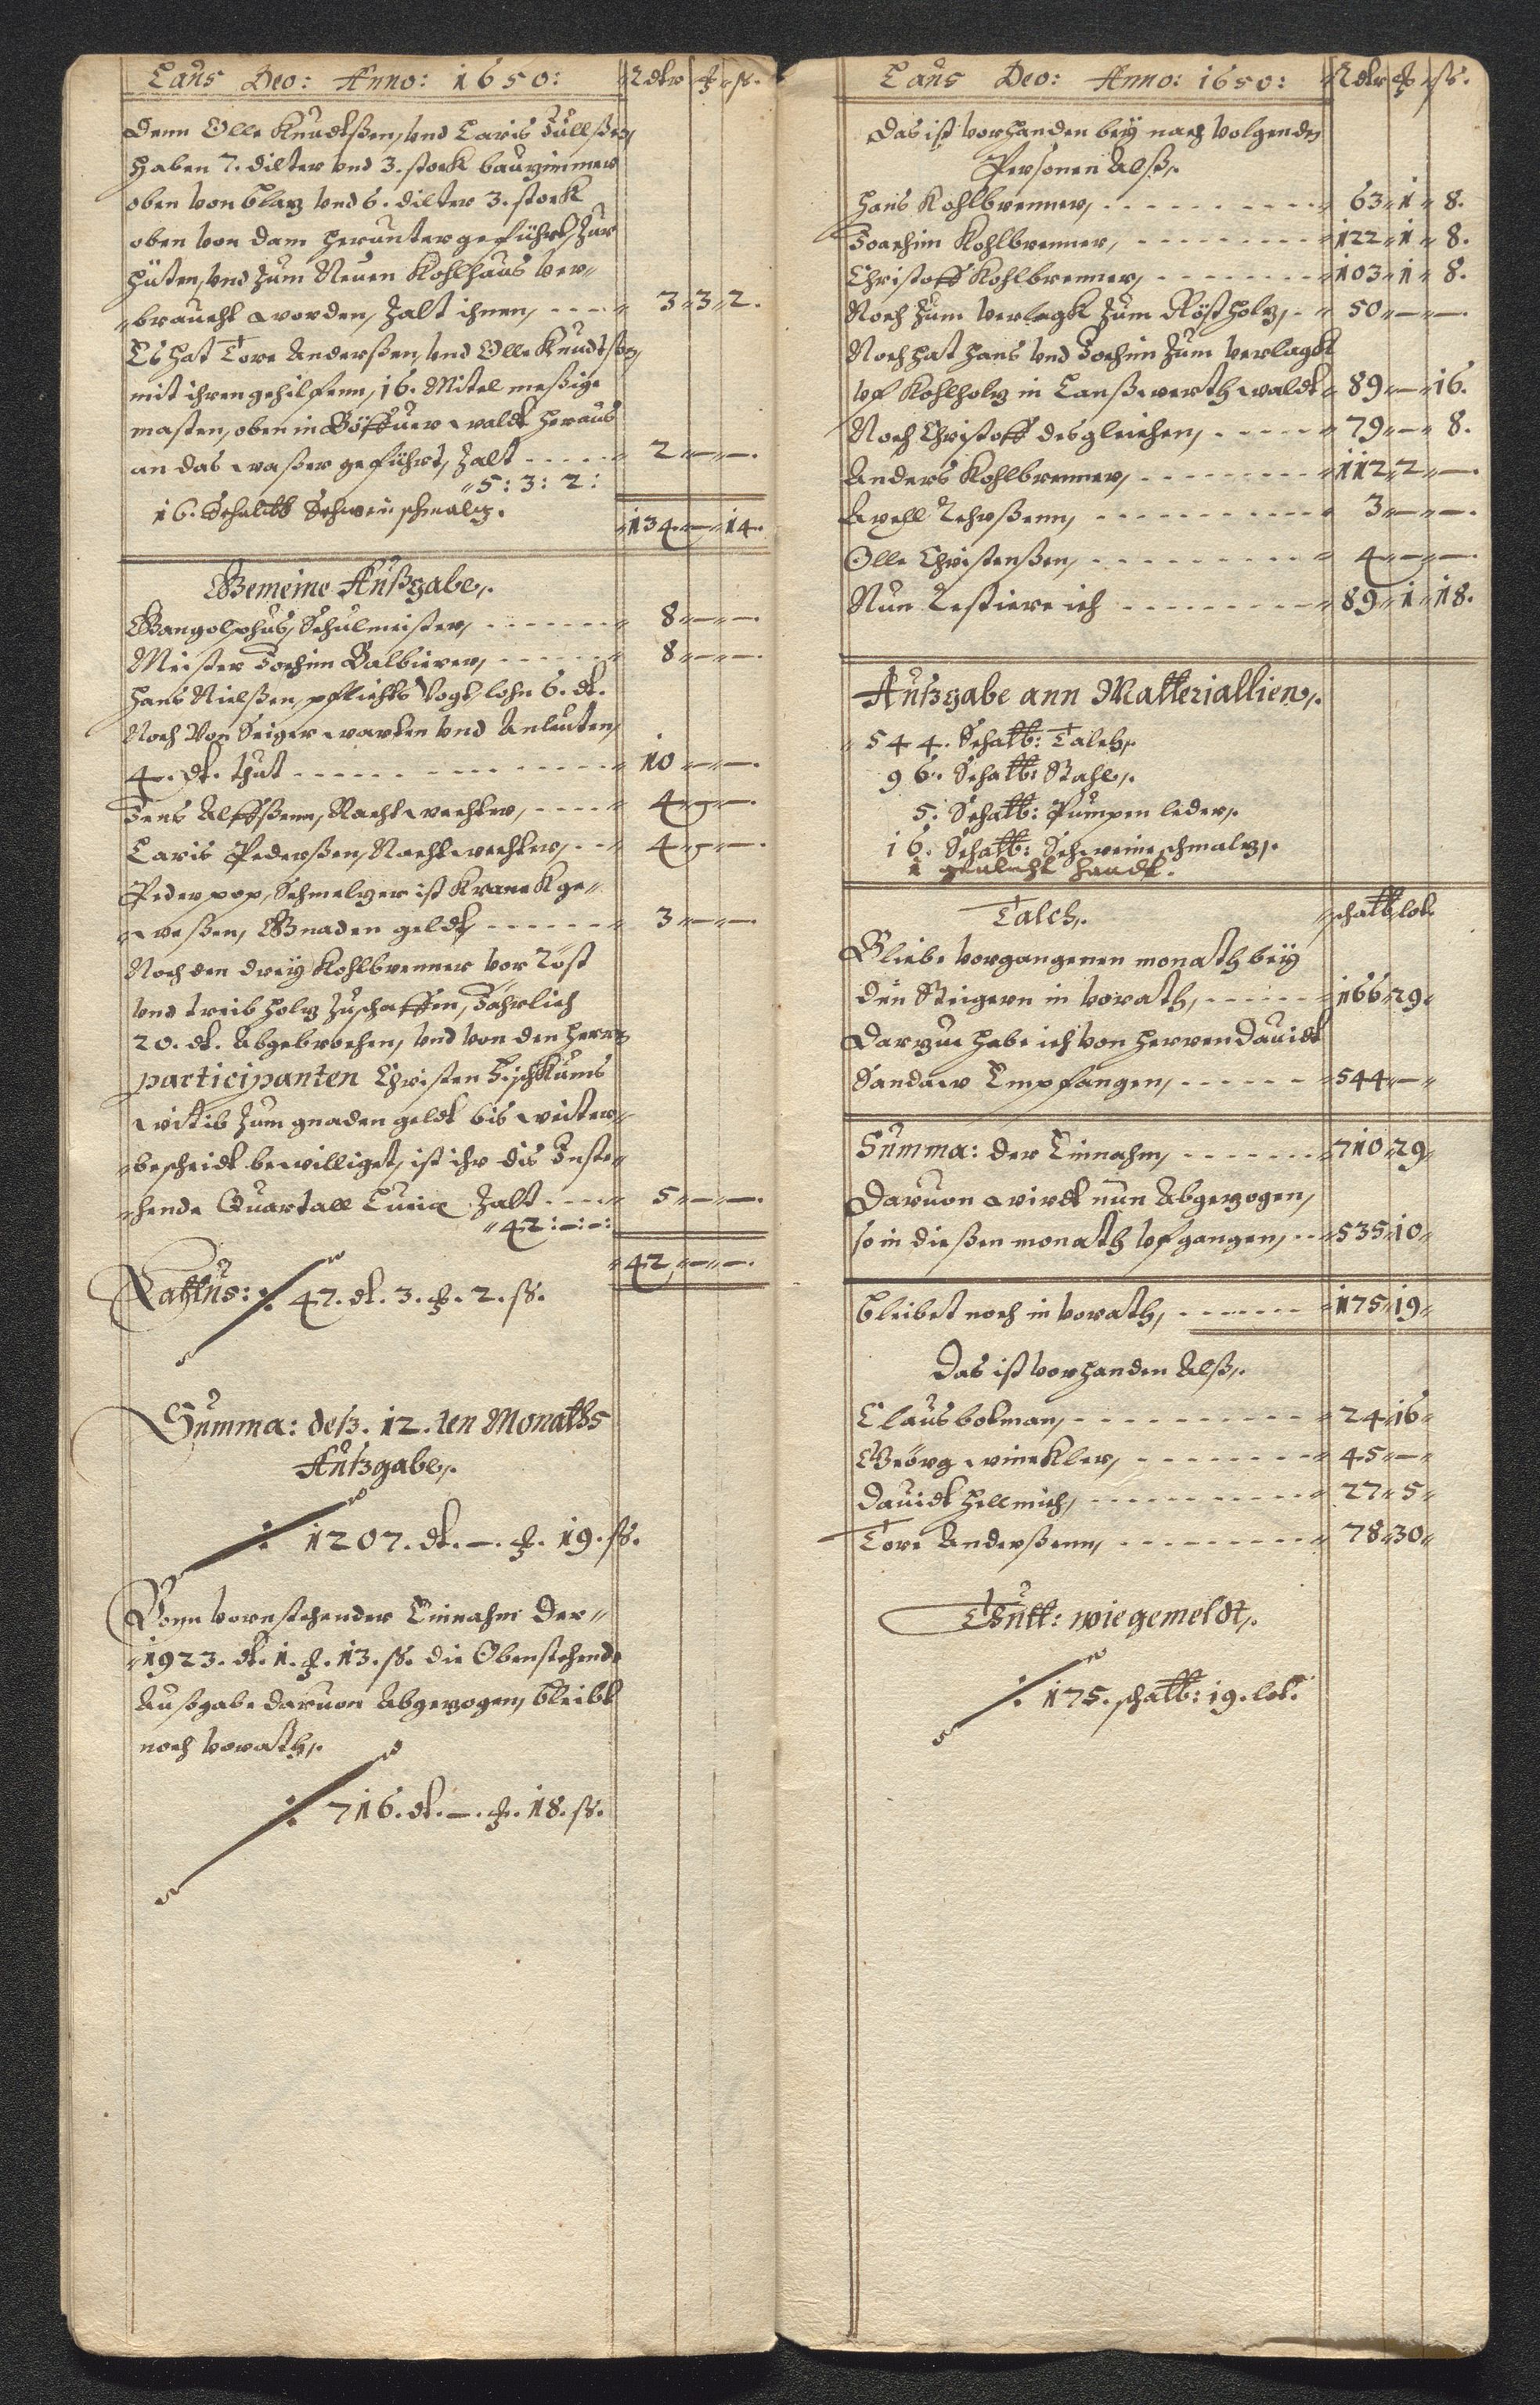 Laus Deo: Anno: 1650: Rdlr ſ.
Denn Olle Knudtßen, vnd Laris
haben 7. dilter vnd 3. stock bauzimmer
oben von vnd 6. dilter 3. stock
oben von dam herunter geführt, zur
hüten, vnd zum Neuen Kohlhaus ver„
„braucht worden, zalt ihnen, „ 3 „ 3 „ 2.
Es hat Tore Anderßen, vnd Olle Knudtßen,
mit ihren gehilfenn, 16. Mitel meßige
masten, oben in waldt heraus
an das waßer geführt, zalt „ 2 „ — „ —.
„ 5: 3: 2:
16. Schalb Schwein schmalz.
„ 134 „ — „ 14.
Gemeine Außgabe,.
Gangolphus, Schulmeister, „ 8 „ — „ —.
Meister Jochim Balbierer, „ 8 „ — „ —.
Hans Nielßen, pflichts Vogt lohn 6. dl.
Noch Von Seiger warten vnd Anleuten,
4. dl. thut „ 10 „ — „ —.
Jens Alffßenn, Nachtwechter, „ 4 „ — „ —.
Laris Pederßen, Nachtwechter, „ 4 „ — „ —.
Peder pop, Schmelzer ist kranck ge„
weßen, Gnaden geldt, „ 3 „ — „ —.
Noch den dreÿ Kohlbrenner vor Röst
vnd treibholz zuschaffen, Jährlich
20. dl. Abgebrochen, vnd von den herrn
participanten Christen
witib zum gnaden geldt bis weiter„
„bescheidt bewilliget, ist ihr dis Inste„
„hende Quartall Zalt „ 5 „ — „ —.
„ 42: —: —:
„ 42 „ — „ —.
Lattus: 47. dl. 3. 2. ſ.
Summa: deß. 12. ten Monaths
Außgabe,.
1207. dl. —. 19. ſ.
Vonn vornstehender Einnahm der„
„1923. dl. 1. 13. ſ. die Obenstehende
Außgabe daruon Abgezogen, bleibt
noch vorath,.
716. dl. —. 18. ſ.
Laus Deo: Anno: 1650: Rdlr ſ.
Das ist vorhanden beÿ nach volgenden
Personen Alß,.
Hans Kohlbrenner, „ 63 „ 1 „ 8.
Joachim Kohlbrenner, „ 122 „ 1 „ 8.
Christoff Kohlbrenner, „ 103 „ 1 „ 8.
Noch zum verlagk zum Röstholz, „ 50 „ — „ —.
Noch hat Hans vnd Jochim zum verlagk
vf Kohlholz in waldt „ 89 „ — „ 16.
Noch Christoff desgleichen, „ 79 „ — „ 8.
Anders Kohlbrenner, „ 112 „ 2 „ —.
Axell „ 3 „ — „ —.
Olle Christenßen, „ 4 „ — „ —.
Nun Restiere ich „ 89 „ 1 „ 18.
Außgabe ann Matteriallien,.
„ 544. Schalb: Talch,.
96. Schalb: Stahl,.
5. Schalb: Pumpen leder,.
16. Schalb: Schweine schmalz,.
1 haudt.
Talch,. „ schalb lot
Bliebe vergangenen monath beÿ
den Steigern in vorath, „ 166 „ 29 „
Darzue habe ich von Herren Dauidt
Sandaw Empfangen, „ 544 „ — „
Summa: der Einnahm, „ 710 „ 29 „
Daruon wirdt nun Abgezogen,
so in dießen monath vfgangen, „ 535 „ 10 „
bleibet noch in vorath, „ 175 „ 19 „
Das ist vorhanden Alß,.
Claus botman, „ 24 „ 16 „
Geörg winckler, „ 45 „ — „
Dauidt Hellmich, „ 27 „ 5 „
Tore Anderßenn, „ 78 „ 30 „
Thutt: wie gemeldt,.
175. schalb: 19. lot.